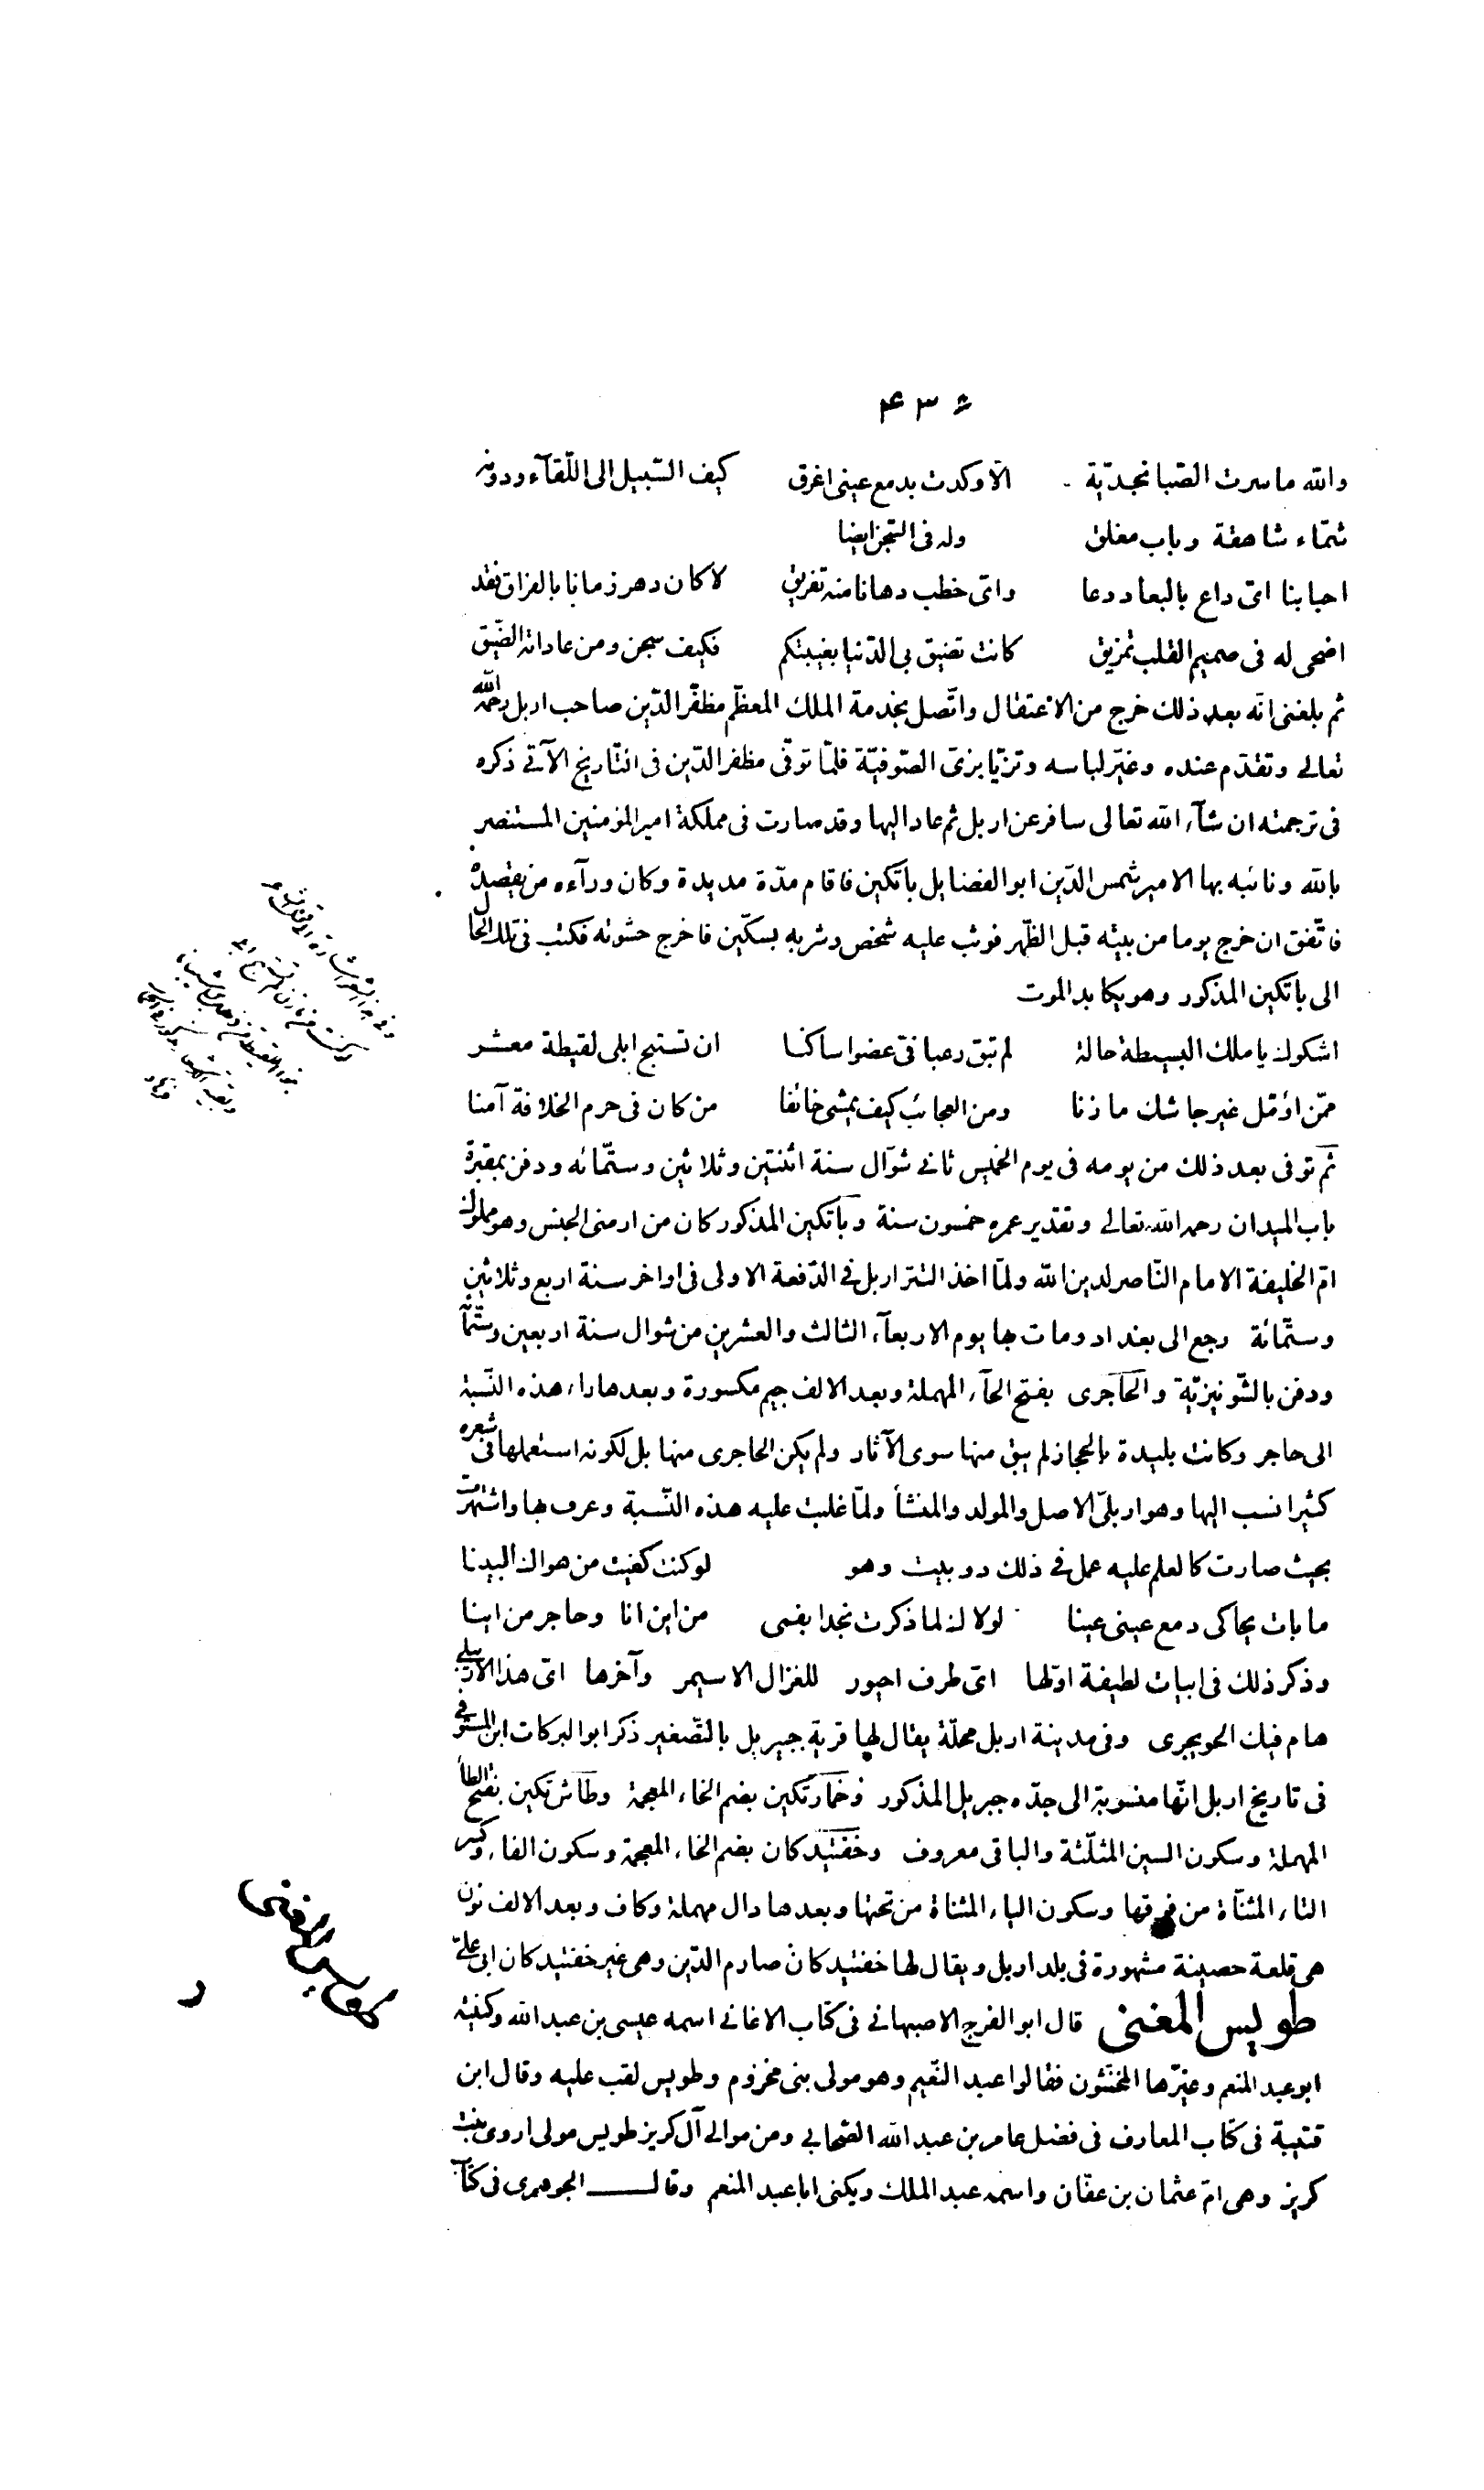 ۴۳۶
والله ما سرت الصّبا نجديّة الّا وكدت بدمع عيني اغرق كيف السّبيل الى اللّقآء ودونه
شمّاء شاهقة وباب مغلق وله في السّجن ايضا
احبابنا اىّ داع بالبعاد دعا واىّ خطب دهانا منه تفريق لا كان دهر زمانا بالفراق فقد
اضحى له فى صميم القلب تمزيق كانت تضيق بى الدّنيا بغيبتكم فكيف سجن ومن عاداته الضّيق
ثم بلغنى انّه بعد ذلك خرج من الاعتقال واتّصل بخدمة الملك المعظّم مظفّر الدّين صاحب اربل رحمه الله
تعالى وتقدّم عنده وغيّر لباسه وتزيّا بزىّ الصّوفيّة فلمّا توفّى مظفر الدّين فى التّاريخ الآتى ذكره
فى ترجمته ان شآء الله تعالى سافر عن اربل ثم عاد اليها وقد صارت فى مملكة امير المؤمنين المستنصر
بالله ونائبه بها الامير شمس الدّين ابو الفضايل باتكين فاقام مدّة مديدة وكان ورآءه من يقصده
فاتّفق ان خرج يوما من بيته قبل الظّهر فوثب عليه شخص وضربه بسكّين فاخرج حشوته فكتب فى تلك الحال
الى باتكين المذكور وهو يكابد الموت
اشكوك يا ملك البسيطة حالة لم تبق رعبا فىّ عضوا ساكنا ان تستبح ابلى لقيطة معشر
ممّن اؤمّل غير جاشك مازنا ومن العجائب كيف يمشى خائفا من كان فى حرم الخلافة آمنا
ثم توفى بعد ذلك من يومه فى يوم الخميس ثانى شوّال سنة اثنتين وثلاثين وستّمائه ودفن بمقبرة
باب الميدان رحمه الله تعالى وتقدير عمره خمسون سنة وباتكين المذكور كان من ارمنى الجنس وهو مملوك
امّ الخليفة الامام النّاصر لدين الله ولمّا اخذ التتر اربل فى الدّفعة الاولى فى اواخر سنة اربع وثلاثين
وستّمائة رجع الى بغداد ومات بها يوم الاربعآء الثالث والعشرين من شوال سنة اربعين وستّمآئة
ودفن بالشّونيزيّة والحاجرى بفتح الحآء المهملة وبعد الالف جيم مكسورة وبعدها راء هذه النّسبة
الى حاجر وكانت بليدة بالحجاز لم يبق منها سوى الآثار ولم يكن الحاجرى منها بل لكونه استعملها فى شعره
كثيرا نسب اليها وهو اربلىّ الاصل والمولد والمنشأ ولمّا غلبت عليه هذه النّسبة وعرف بها واشتهرت
بحيث صارت كالعلم عليه عمل فى ذلك دوبيت وهو لو كنت كفيت من هواك البينا
ما بات يحاكى دمع عينى عينا لولاك لما ذكرت نجدا بفمى من اين انا وحاجر من اينا
وذكر ذلك فى ابيات لطيفة اوّلها اىّ طرف احيور للغزال الاسيمر وآخرها اىّ هذا الاربيلى
هام فيك الحويجرى وفى مدينة اربل محلّة يقال لها قرية جبيريل بالتّصغير ذكر ابو البركات ابن المستوفى
فى تاريخ اربل انّها منسوبة الى جدّه جبريل المذكور وخمارتكين بضم الخاء المعجمة وطاشتكين بفتح الطآء
المهملة وسكون السين المثلّثة والباقى معروف وخفتيدكان بضم الخاء المعجمة وسكون الفاء وكسر
التاء المثنّاة من فوقها وسكون الياء المثناة من تحتها وبعدها دال مهملة وكاف وبعد الالف نون
هى قلعة حصينة مشهورة فى بلد اربل ويقال لها خفتيدكان صارم الدّين وهى غير خفتيدكان ابى علىّ
طويس المغنى قال ابو الفرج الاصبهانى فى كتاب الاغانى اسمه عيسى بن عبد الله وكنيته
ابو عبد المنعم وغيّرها المخنّثون فقالوا عبد النّعيم وهو مولى بنى مخزوم وطويس لقب عليه وقال ابن
قتيبة فى كتاب المعارف فى فضل عامر بن عبد الله الصّحابى ومن موالى آل كريز طويس مولى اروى بنت
كريز وهى امّ عثمان بن عفّان واسمه عبد الملك ويكنى ابا عبد المنعم وقال الجوهرى فى كتاب
طويس المغنى